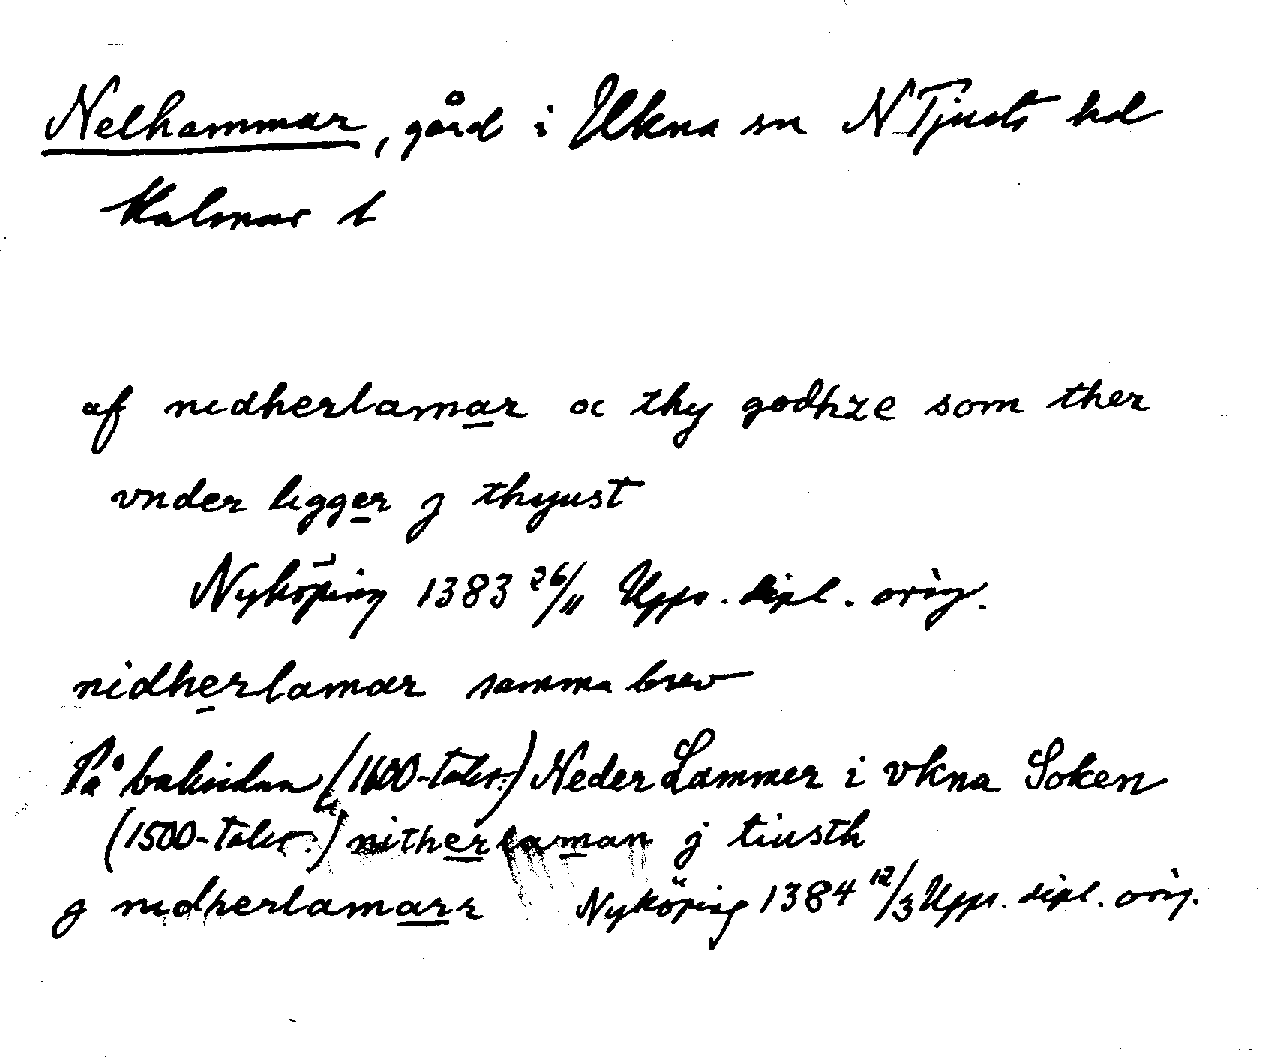 Nelhammar, gård i Ukna sn N Tjusts hd
Kalmar l
af nidherlamar oc thy godhze som ther
vnder ligger j thyust
Nyköping 1383 26/11 Upps. dipl. orig.
nidherlamar samma brev
På baksidan (1600-talet:) Neder Lammer i vkna Soken
(1500-talet:) nitherlaman j tiusth
j nidherlamarr Nyköping 1384 12/3 Upps. dipl. orig.